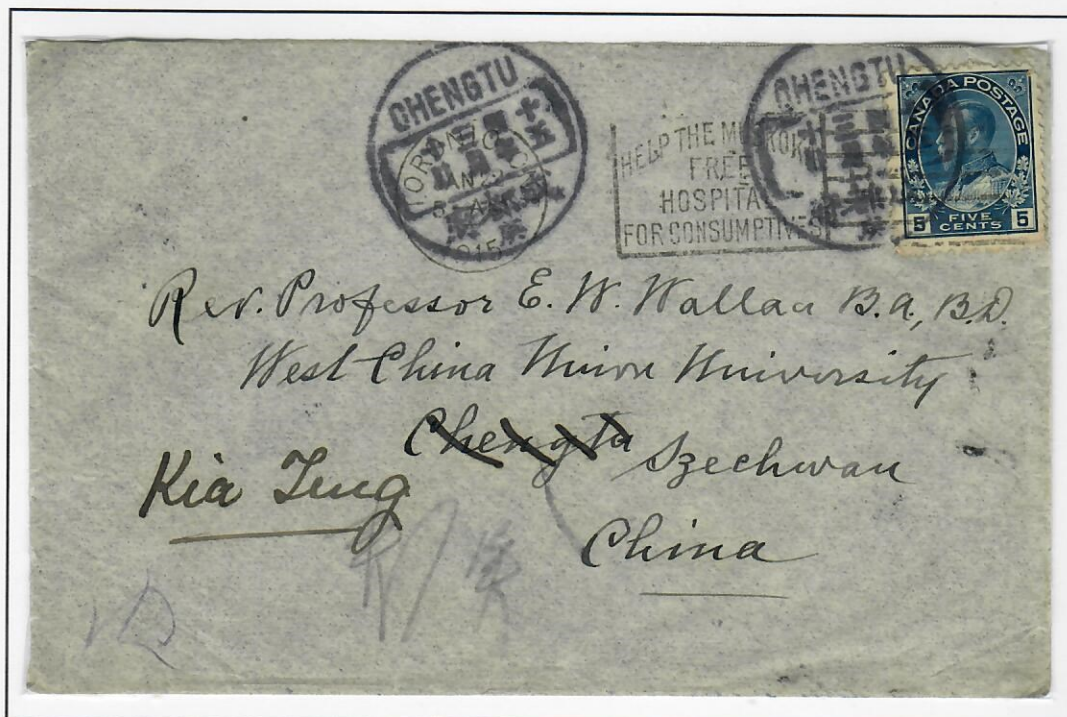 CHENGTU
TORONTO
JAN 22
1915
HELP THE MUSKOK
FREE
HOSPITAL
FOR CONSUMPTIVES
CHENGTU
CANADA POSTAGE
5 FIVE CENTS 5
Rev. Professor E. W. Wallace B.A., B.D.
West China Union University
Chengtu Szechwan
Kia Ting
China